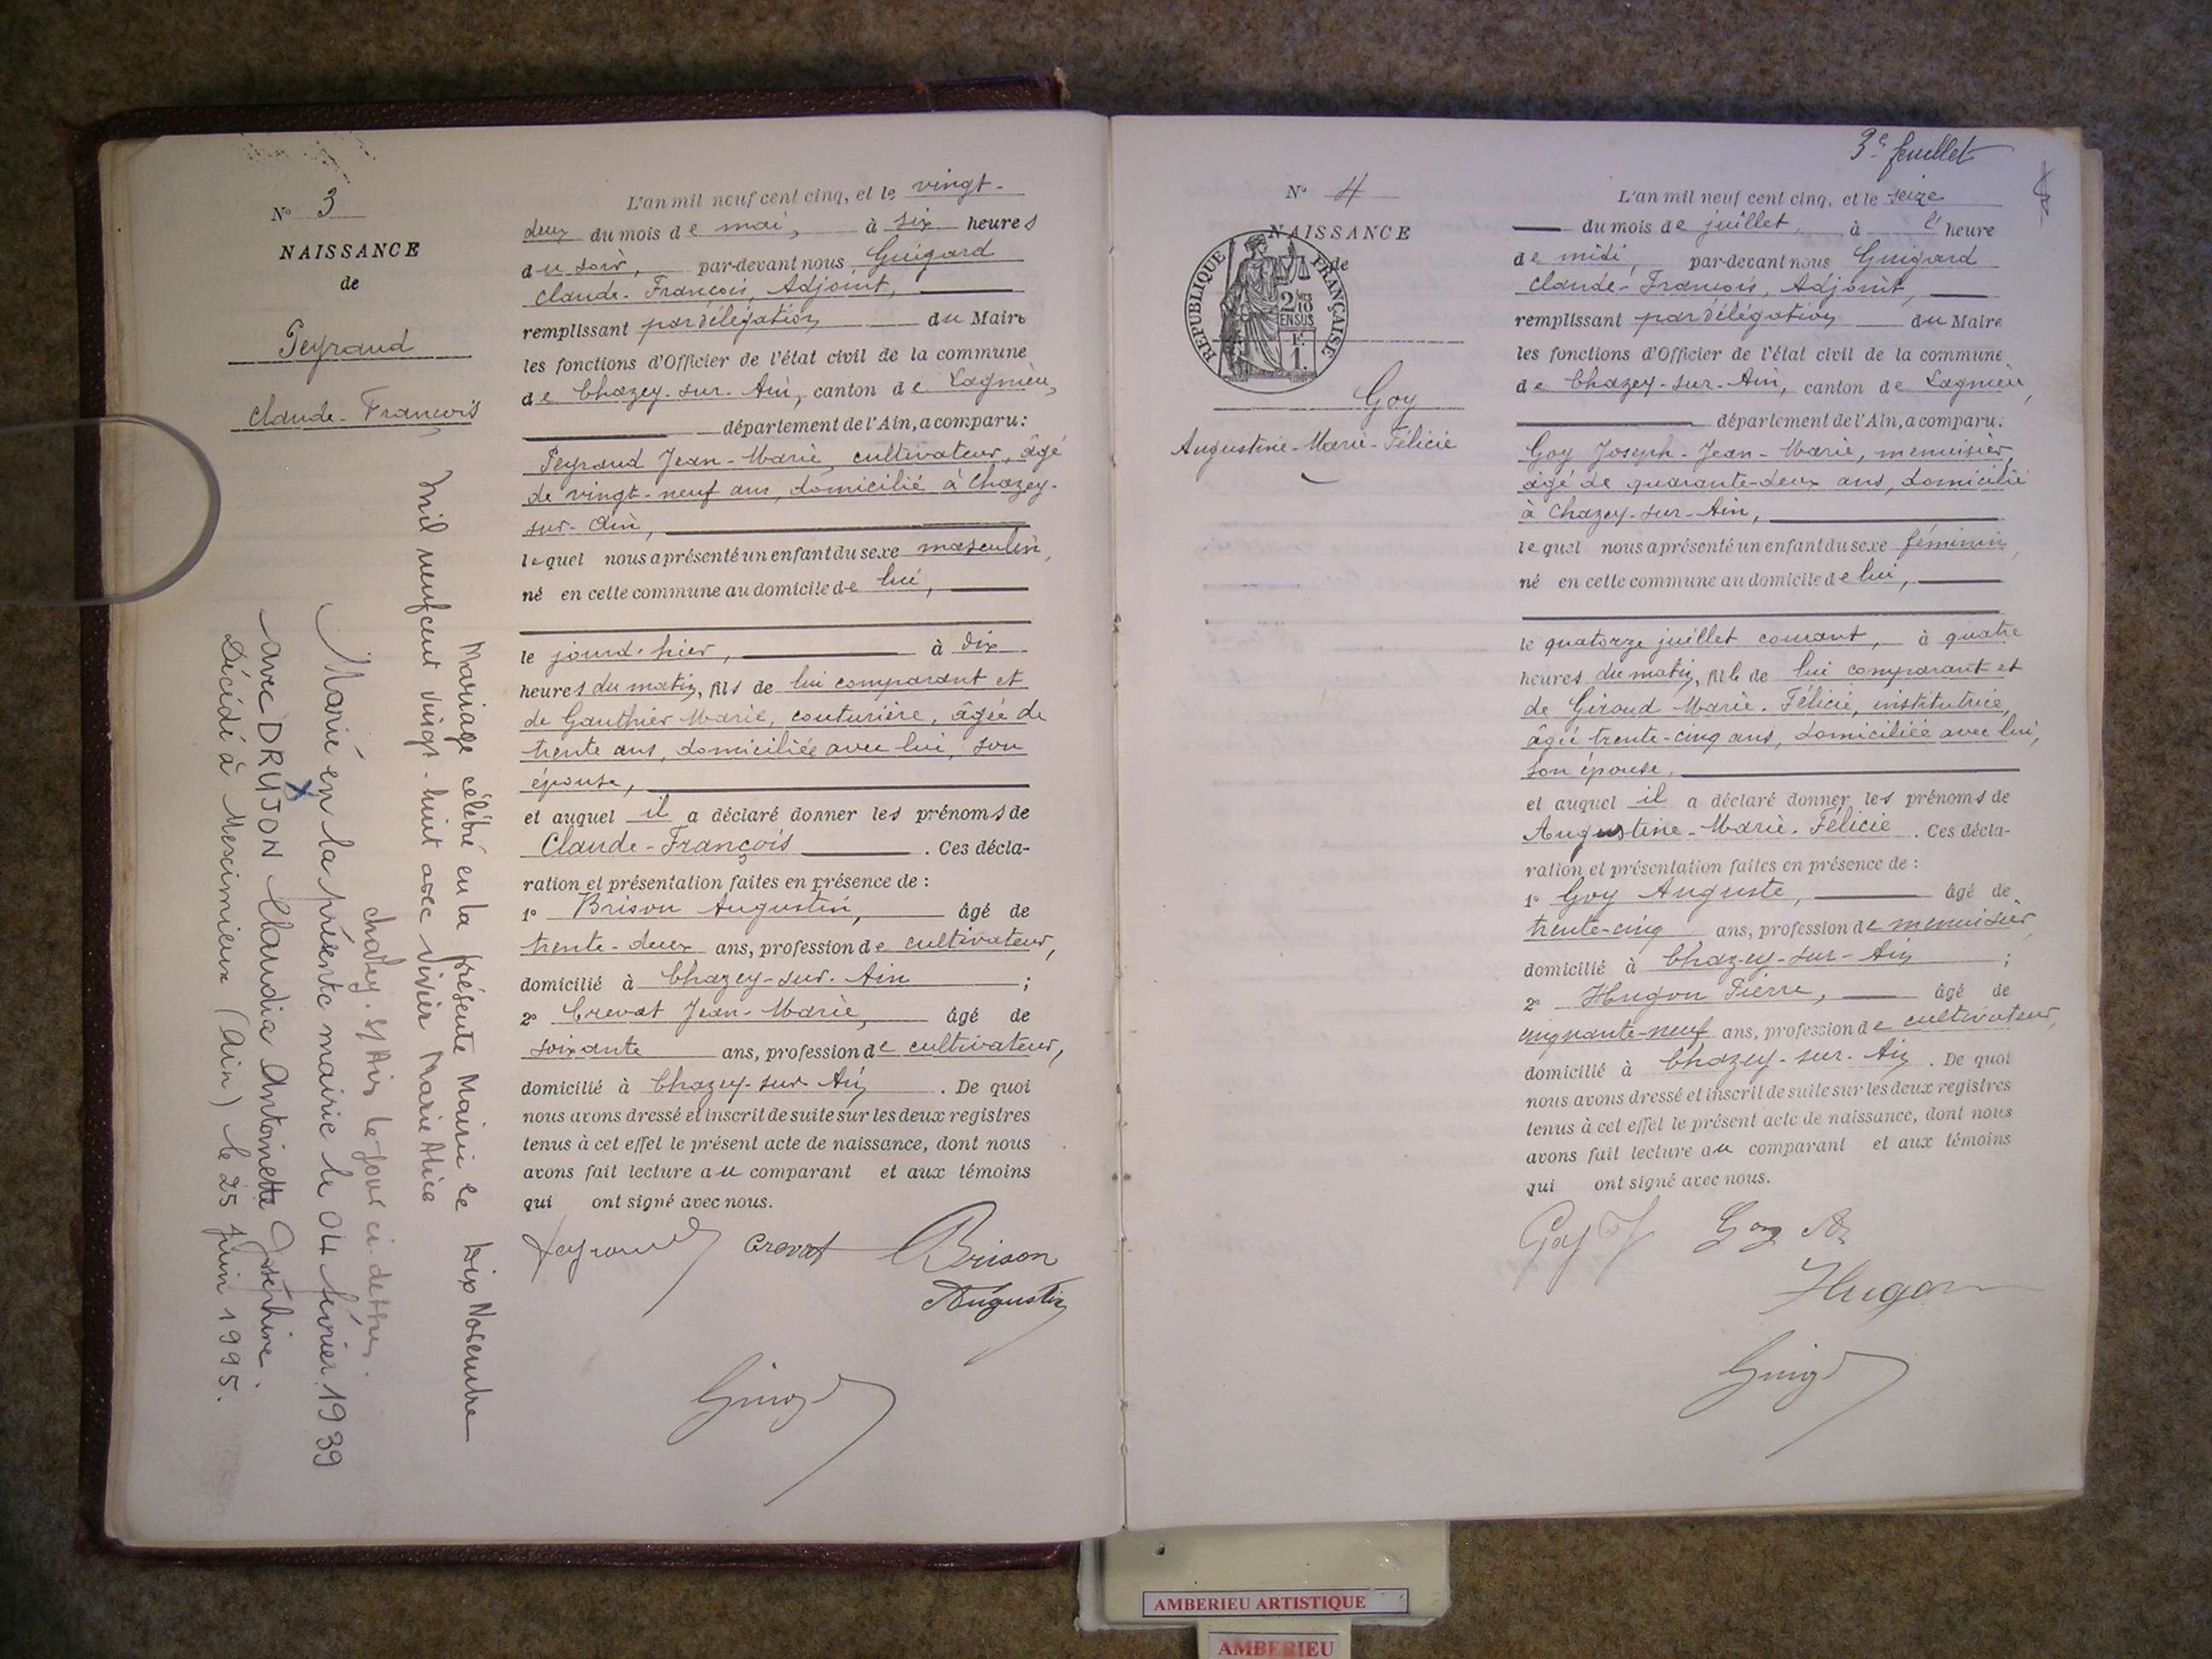 N° 3
NAISSANCE
de
Peyraud
Claude-François
Mariage célébré en la présente Mairie le Dix Novembre
mil neuf cent vingt-huit avec Vivier Marie Alice
chazey-s/Ain le jour ci-dessus.
Marié en la présente mairie le 04 février 1939
avec DRUJON Claudia Antoinette Joséphine.
Décédé à Meximieux (Ain) le 25 juin 1995.
L'an mil neuf cent cinq, et le vingt-
deux du mois de mai, à six heures
du soir, par-devant nous Guigard
Claude-François, Adjoint,
remplissant par délégation du Maire
les fonctions d'Officier de l'état civil de la commune
de Chazey-sur-Ain, canton de Lagnieu,
département de l'Ain, a comparu:
Peyraud Jean-Marie, cultivateur, âgé
de vingt-neuf ans, domicilié à Chazey-
sur-Ain,
lequel nous a présenté un enfant du sexe masculin,
né en cette commune au domicile de lui,
le jourd'hier, à dix
heures du matin, fils de lui comparant et
de Gauthier Marie, couturière, âgée de
trente ans, domiciliée avec lui, son
épouse,
et auquel il a déclaré donner les prénoms de
Claude-François. Ces décla-
ration et présentation faites en présence de :
1° Brison Augustin, âgé de
trente-deux ans, profession de cultivateur,
domicilié à Chazey-sur-Ain ;
2° Crevat Jean-Marie, âgé de
soixante ans, profession de cultivateur,
domicilié à Chazey-sur-Ain. De quoi
nous avons dressé et inscrit de suite sur les deux registres
tenus à cet effet le présent acte de naissance, dont nous
avons fait lecture au comparant et aux témoins
qui ont signé avec nous.
Peyraud Crevat Brison
Augustin
Guigd
3e feuillet
N° 4
NAISSANCE
de
REPUBLIQUE FRANÇAISE
2/10
EN SUS
F.
1.
Goy
Augustine-Marie-Félicie
L'an mil neuf cent cinq, et le seize
du mois de juillet, à l' heure
de midi, par-devant nous Guigard
Claude-François, Adjoint,
remplissant par délégation du Maire
les fonctions d'Officier de l'état civil de la commune
de Chazey-sur-Ain, canton de Lagnieu,
département de l'Ain, a comparu:
Goy Joseph-Jean-Marie, menuisier,
âgé de quarante-deux ans, domicilié
à Chazey-sur-Ain,
lequel nous a présenté un enfant du sexe féminin,
né en cette commune au domicile de lui,
le quatorze juillet courant, à quatre
heures du matin, fille de lui comparant et
de Giroud Marie-Félicie, institutrice,
âgée trente-cinq ans, domiciliée avec lui,
son épouse.
et auquel il a déclaré donner les prénoms de
Augustine-Marie-Félicie. Ces décla-
ration et présentation faites en présence de :
1° Goy Auguste, âgé de
trente-cinq ans, profession de menuisier
domicilié à Chazey-sur-Ain ;
2° Hugon Pierre, âgé de
cinquante-neuf ans, profession de cultivateur,
domicilié à Chazey-sur-Ain. De quoi
nous avons dressé et inscrit de suite sur les deux registres
tenus à cet effet le présent acte de naissance, dont nous
avons fait lecture au comparant et aux témoins
qui ont signé avec nous.
Goy J Goy A
Hugon
Guigd
AMBERIEU ARTISTIQUE
AMBERIEU